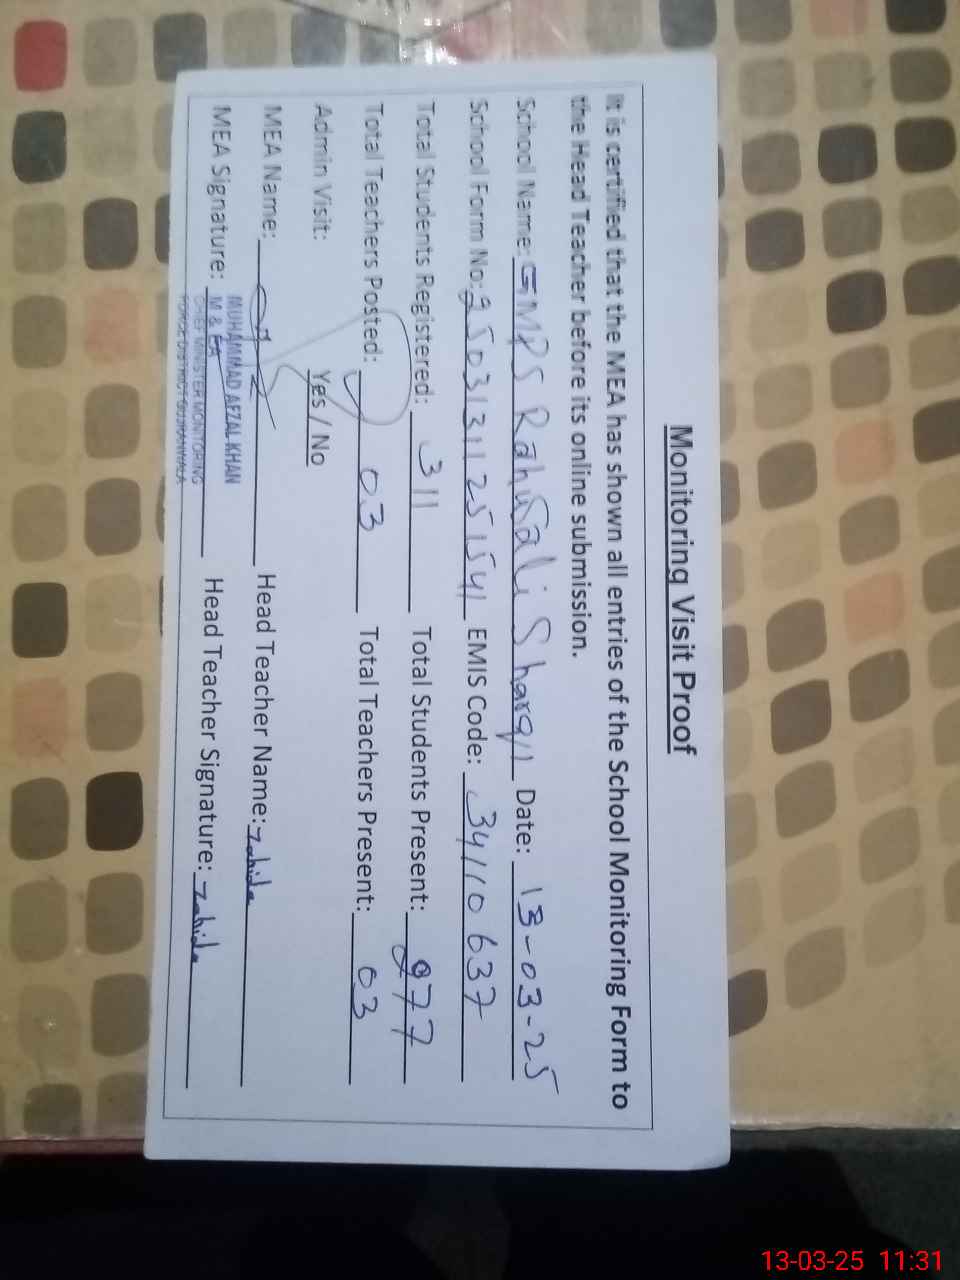 Monitoring Visit Proof
It is certified that the MEA has shown all entries of the School Monitoring Form to
the Head Teacher before its online submission.
School Name: GMPS Rahwali Sharqi Date: 13-03-25
School Form No: 25031311251541 EMIS Code: 34110637
Total Students Registered: 311 Total Students Present: 277
Total Teachers Posted: 03 Total Teachers Present: 03
Admin Visit: Yes / No
MEA Name: Head Teacher Name: Zahida
MEA Signature: Head Teacher Signature: Zahida
MUHAMMAD AFZAL KHAN
M & EA
CHIEF MINISTER MONITORING
FORCE DISTRICT GUJRANWALA
13-03-25 11:31